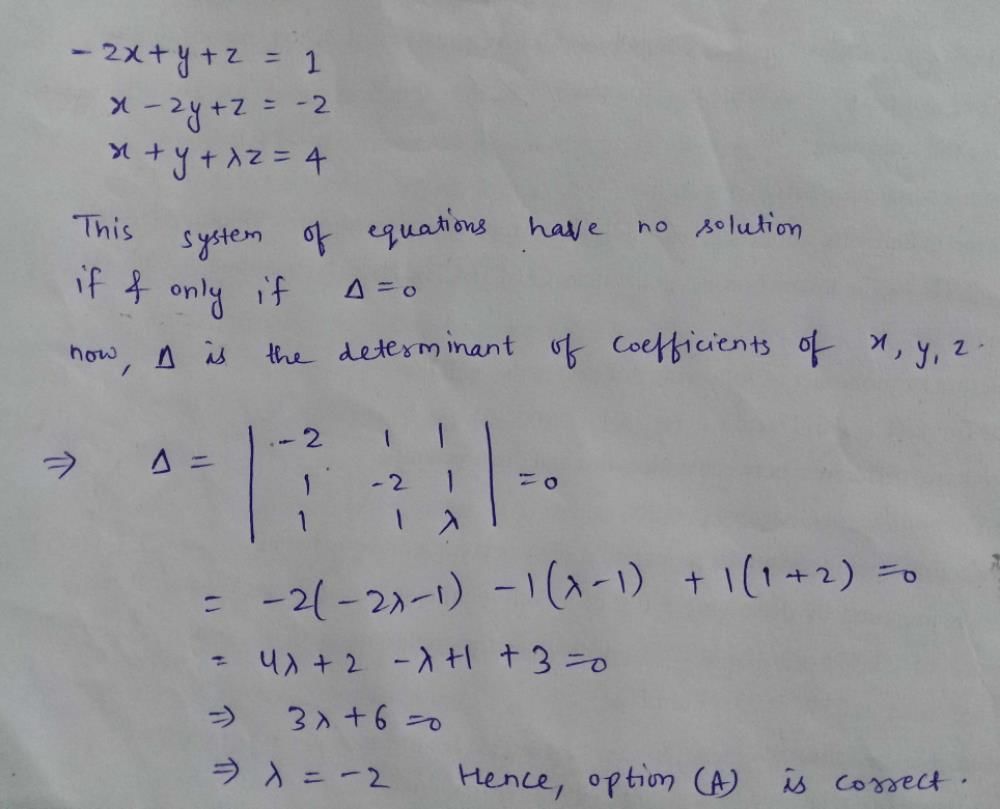 - 2x + y + z = 1
x - 2y + z = -2
x + y + λz = 4
This system of equations have no solution
if & only if Δ = 0
now, Δ is the determinant of coefficients of x, y, z.
⇒ Δ = | -2 1 1 |
| 1 -2 1 | = 0
| 1 1 λ |
= -2(-2λ-1) -1(λ-1) + 1(1+2) = 0
= 4λ + 2 - λ + 1 + 3 = 0
⇒ 3λ + 6 = 0
⇒ λ = -2 Hence, option (A) is correct.